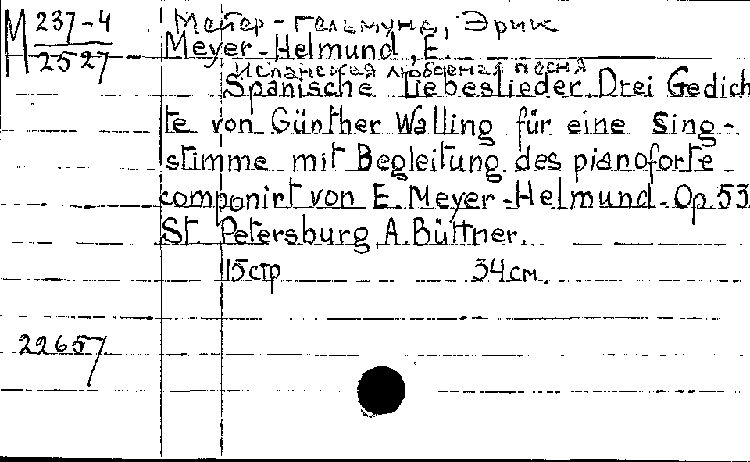 М 237-4
2527
Мейер-Гельмунд, Эрик
Meyer-Helmund, E.
Испанская любовная песня
Spanische Liebeslieder. Drei Gedich
te von Günther Walling für eine Sing-
stimme mit Begleitung des pianoforte
componirt von E. Meyer-Helmund. Op. 53
St. Petersburg, A. Büttner.
15 стр 34 см.
22657